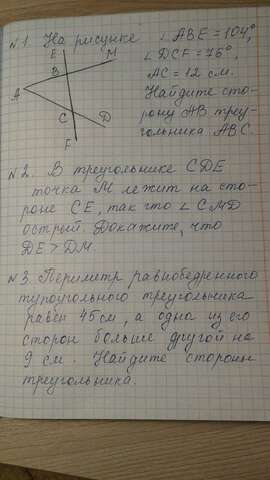 №1. На рисунке ∠ABE = 104°,
∠DCF = 76°,
AC = 12 см.
Найдите сто-
рону AB треу-
гольника ABC.
E
M
B
A
C
D
F
№2. В треугольнике CDE
точка M лежит на сто-
роне CE, так что ∠CMD
острый. Докажите, что
DE > DM.
№3. Периметр равнобедренного
тупоугольного треугольника
равен 45 см, а одна из его
сторон больше другой на
9 см. Найдите стороны
треугольника.